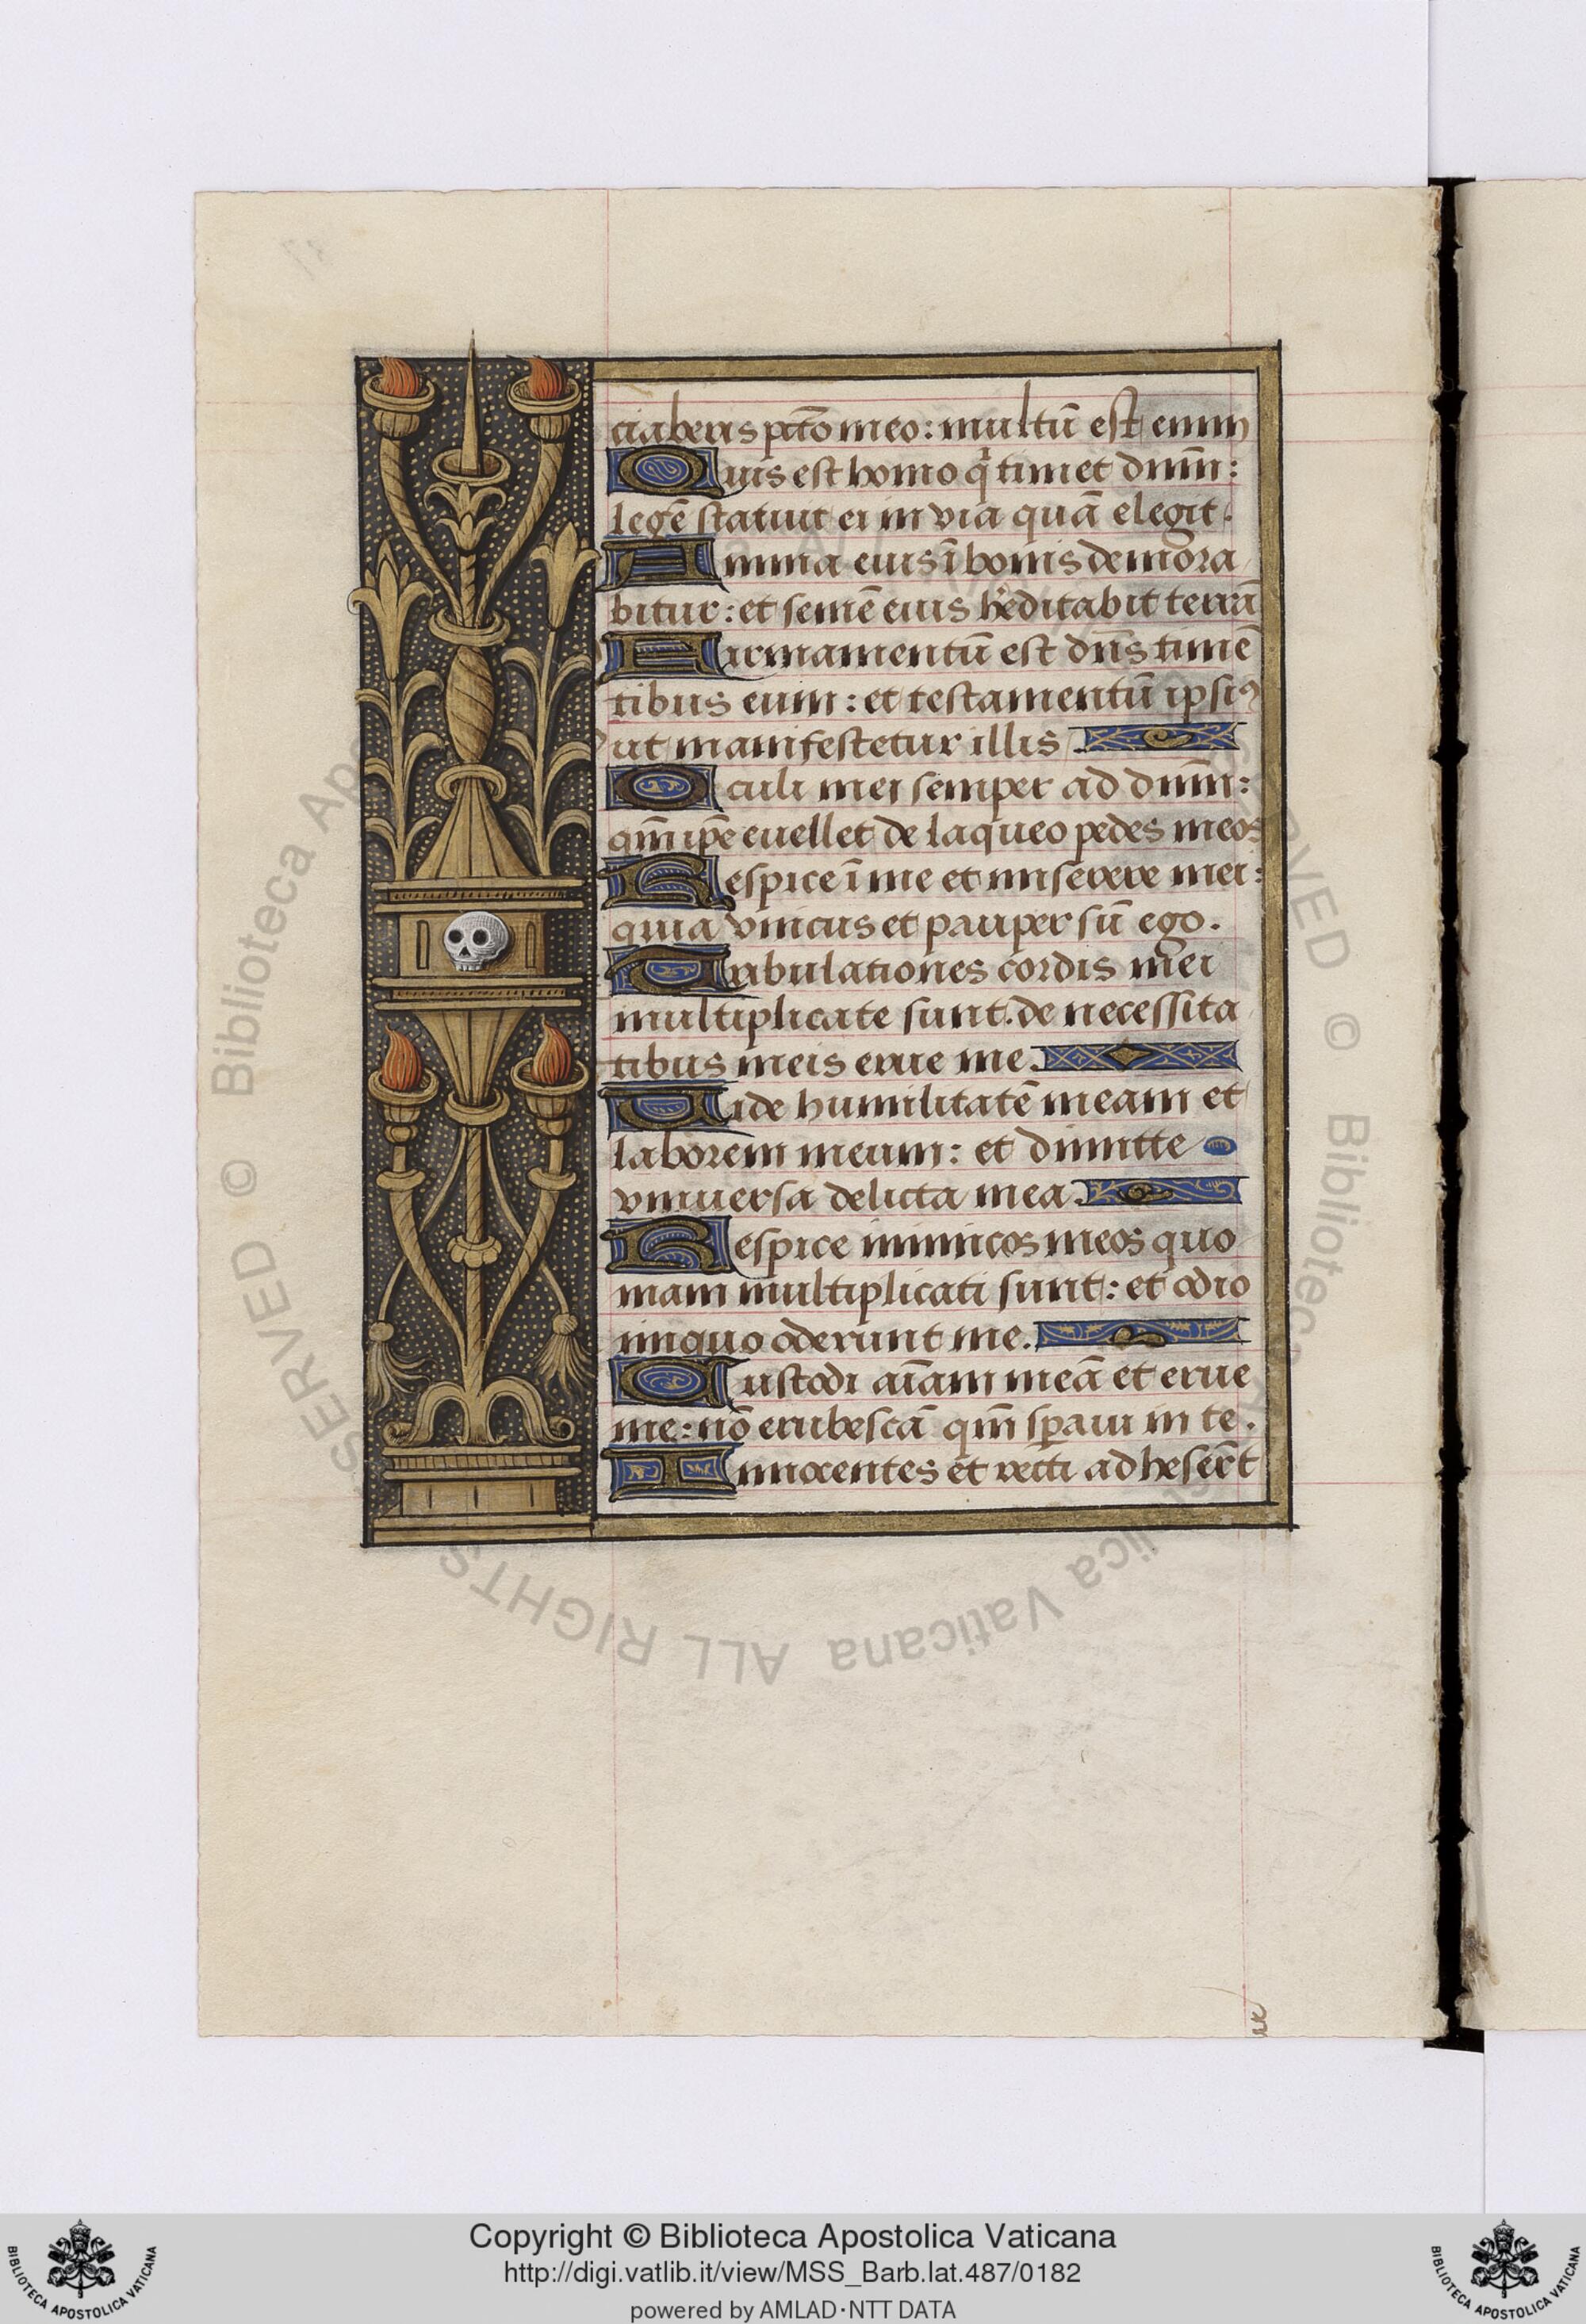 ciaberis pctō meo: multū est enim
Quis est homo q timet dnm̄:
legē statuit ei in via quā elegit.
Anima eius ī bonis demora
bitur: et semē eius heditabit terrā
Firmamentū est dn̄s timē
tibus eum: et testamentū ipsiꝰ
ut manifestetur illis
Oculi mei semper ad dnm̄:
qm̄ ipe euellet de laqueo pedes meos
Respice ī me et miserere mei:
quia vnicus et pauper sū ego.
Tribulationes cordis mei
multiplicate sunt. de necessita
tibus meis erue me.
Vide humilitatē meam et
laborem meum: et dimitte
vniuersa delicta mea.
Respice inimicos meos quo
niam multiplicati sunt: et odio
iniquo oderunt me.
Custodi aīam meā et erue
me: nō erubescā qm̄ speraui in te.
Innocentes et recti adheserūt
SERVED © Biblioteca Apostolica Vaticana ALL RIGHTS RESERVED © Biblioteca
Copyright © Biblioteca Apostolica Vaticana
http://digi.vatlib.it/view/MSS_Barb.lat.487/0182
powered by AMLAD·NTT DATA
BIBLIOTECA APOSTOLICA VATICANA
BIBLIOTECA APOSTOLICA VATICANA